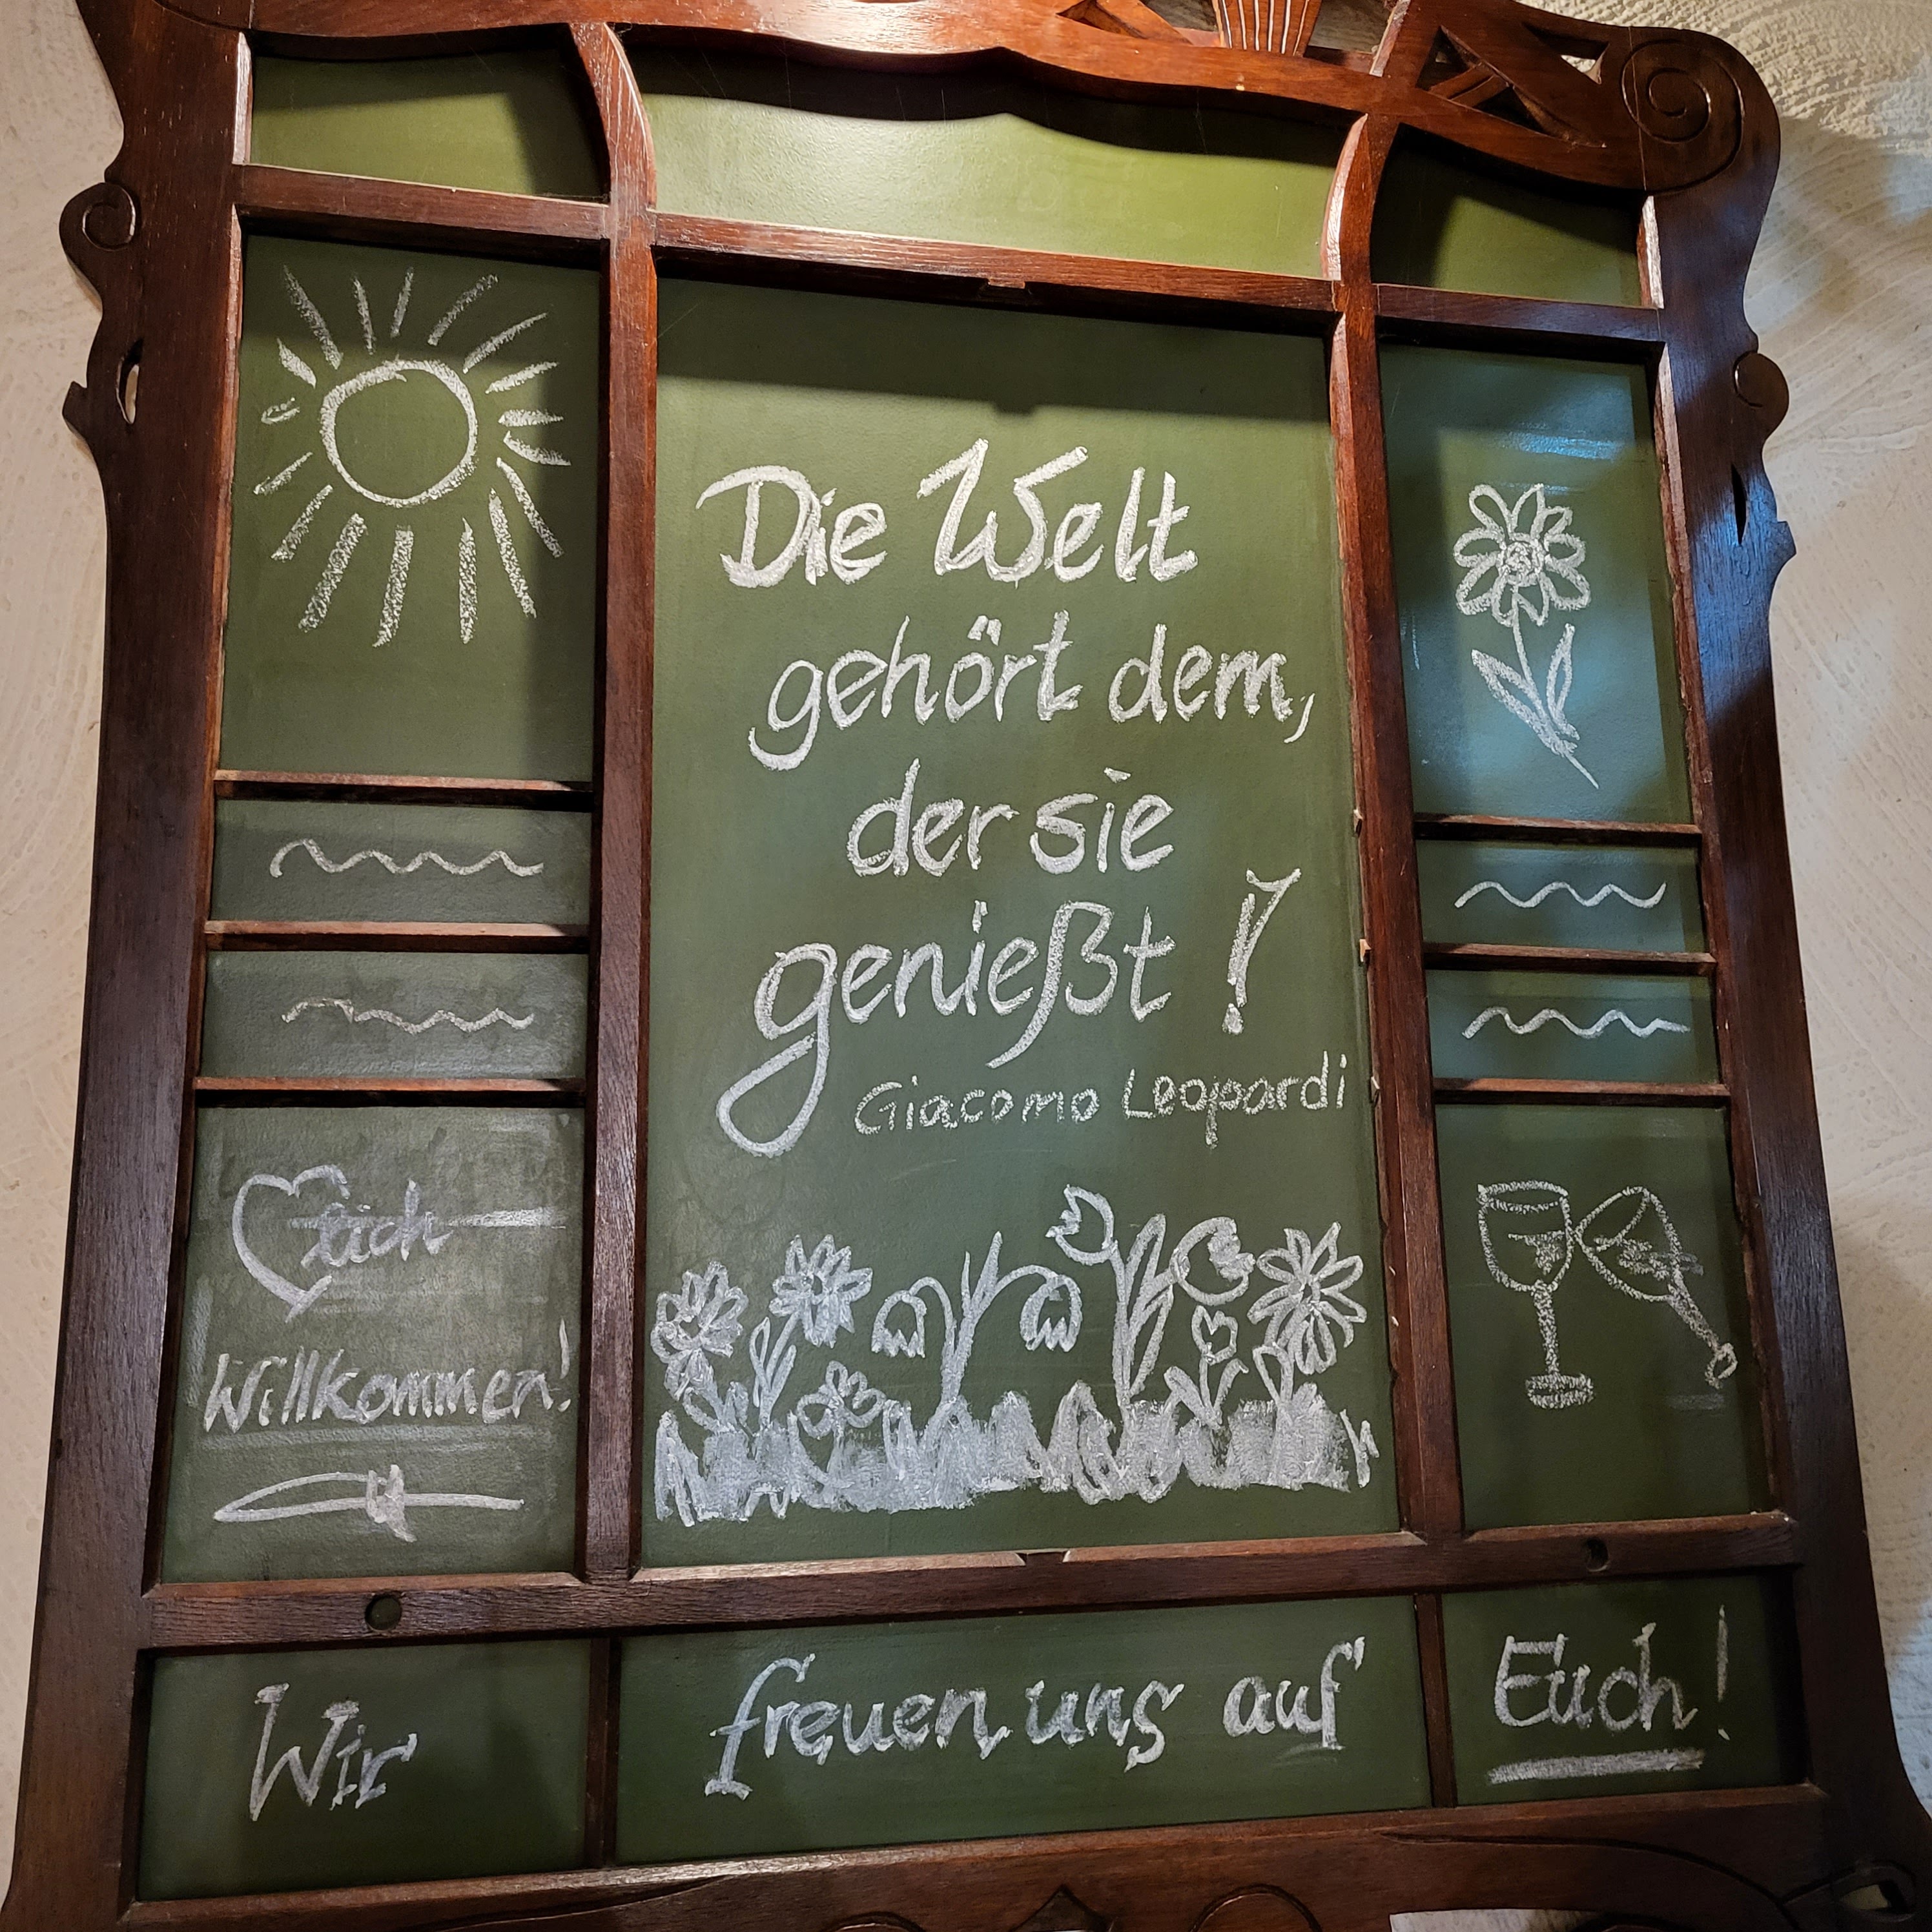 Die Welt
gehört dem,
der sie
genießt!
Giacomo Leopardi
lich
Willkommen!
Wir freuen uns auf Euch!